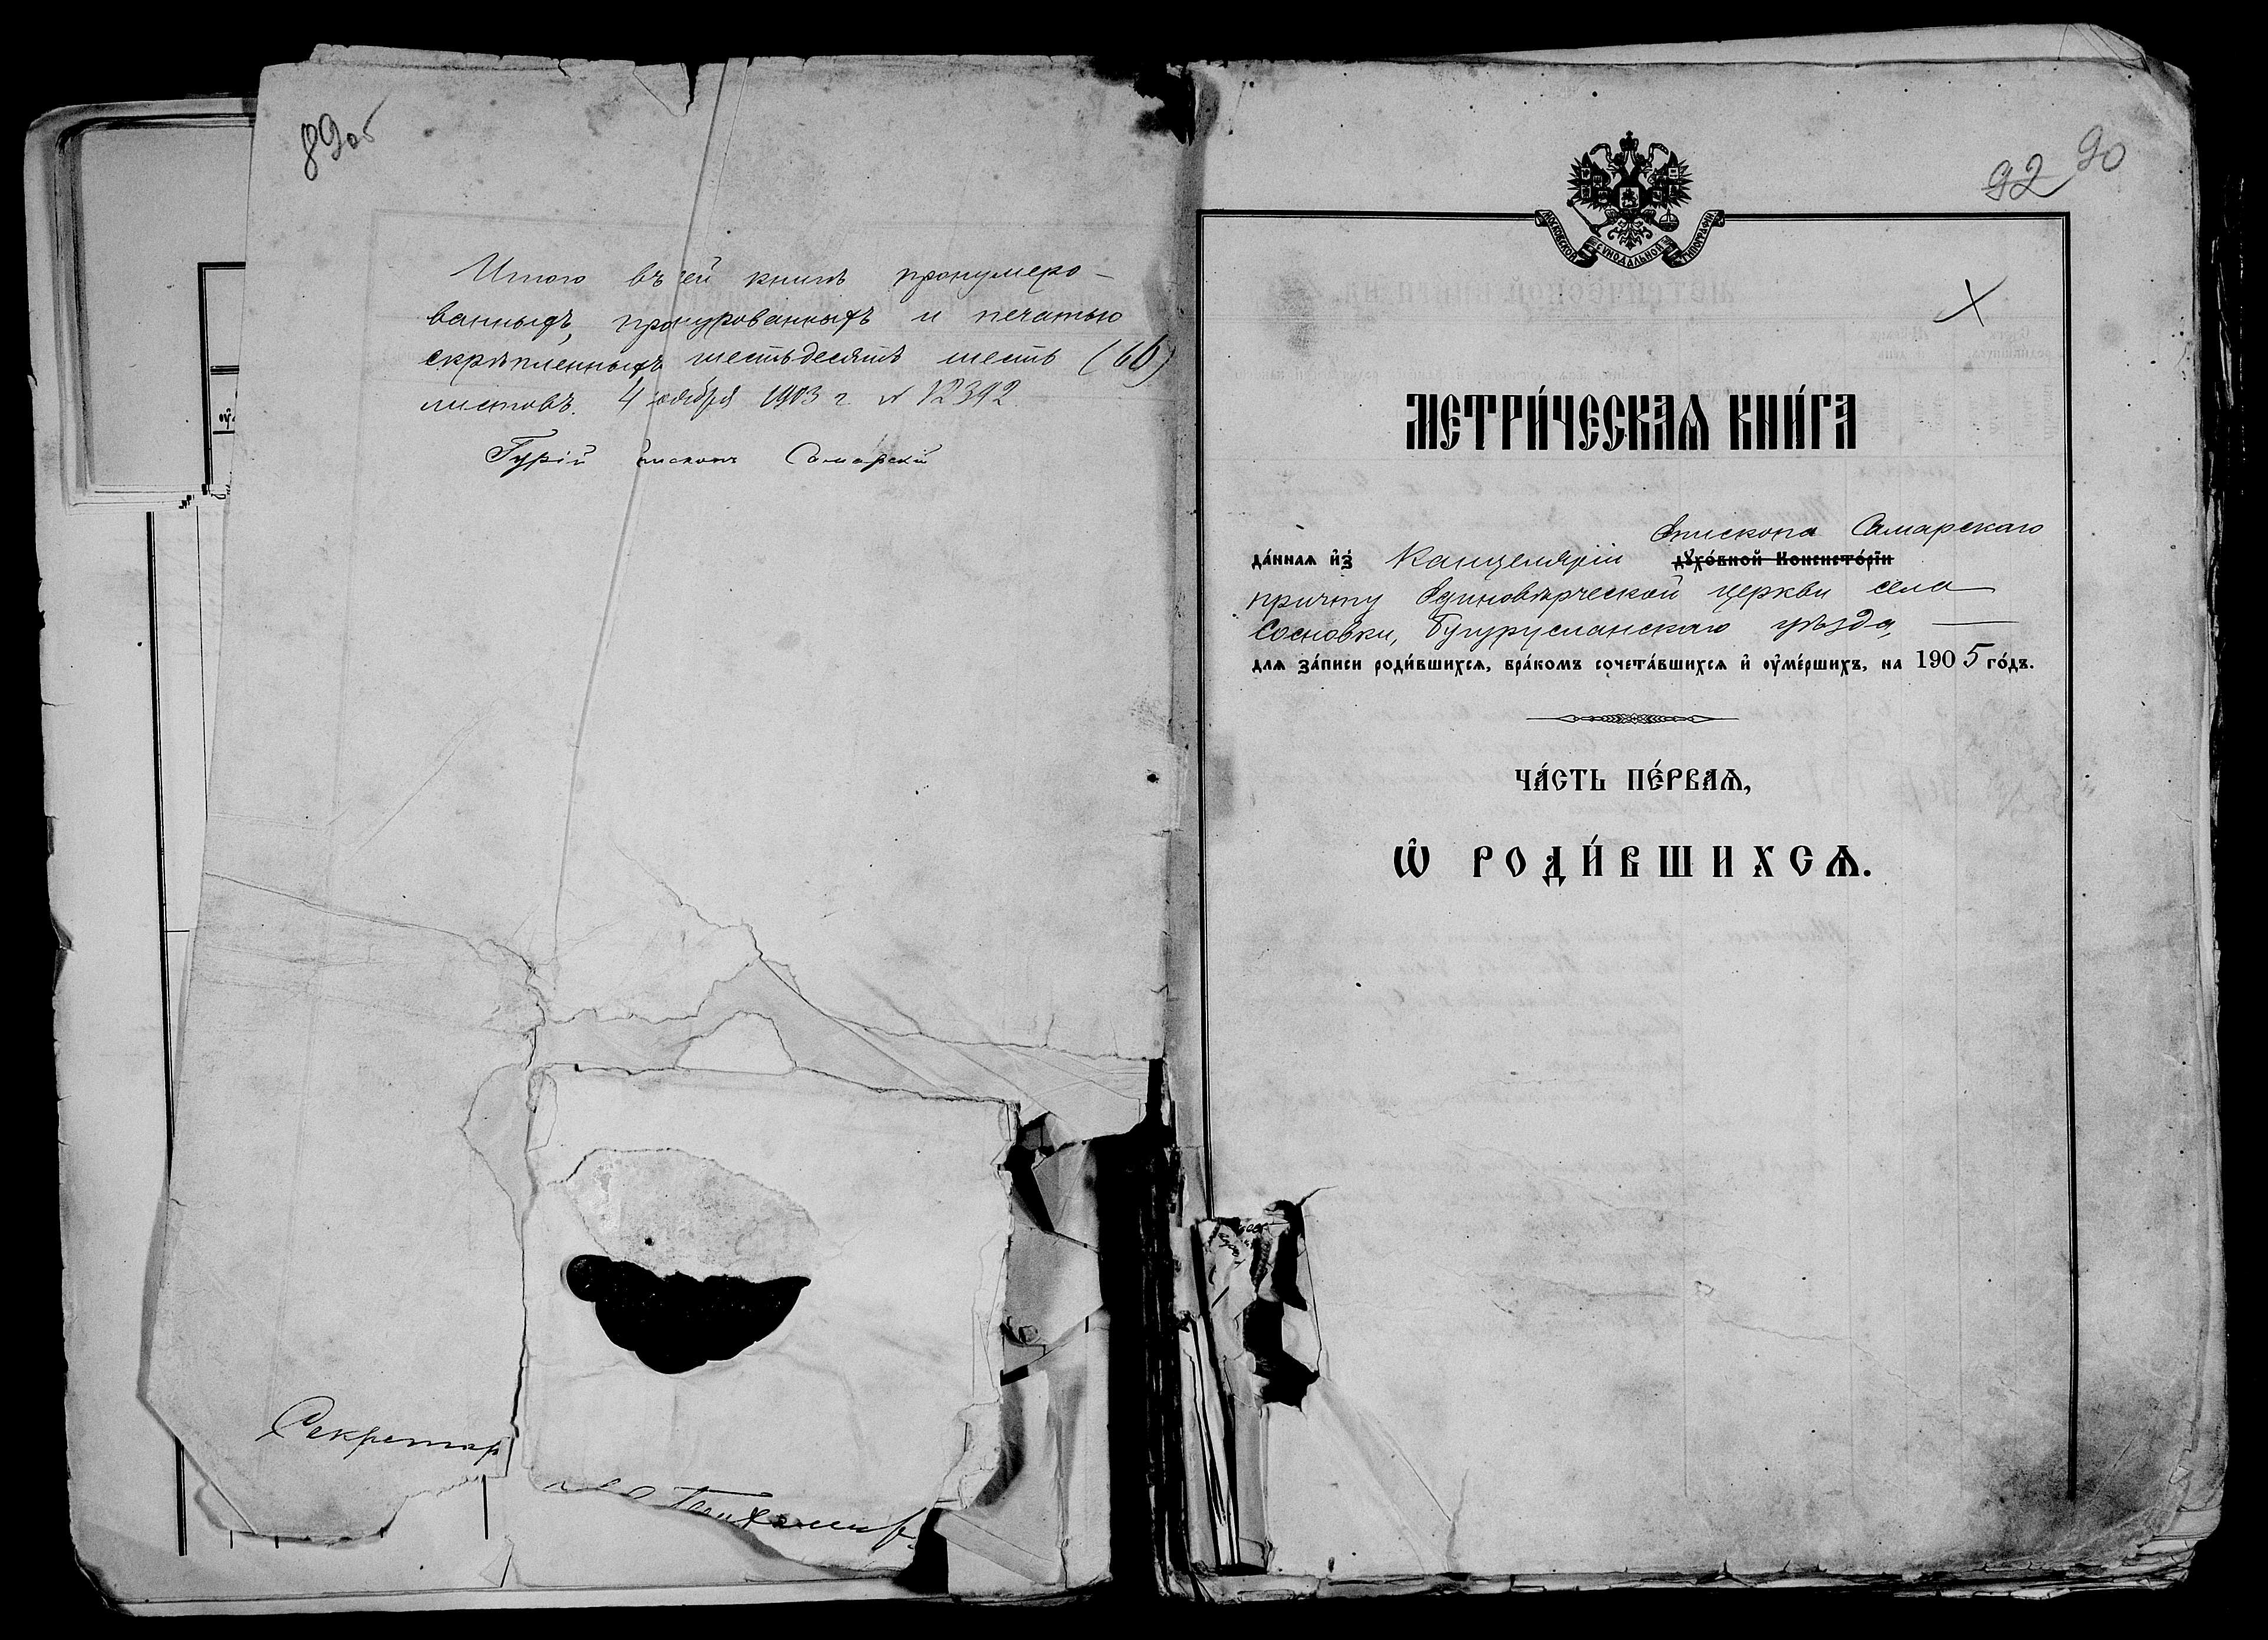 89об
Итого въ сей книгѣ пронумеро-
ванныхъ, прошнурованныхъ и печатью
скрѣпленныхъ шестьдесятъ шесть (66)
листовъ. 4 ноября 1903 г. № 12392.
Гурій Епископъ Самарскій
Секретар
92 90
МОСКОВСКОЙ СѴНОДАЛЬНОЙ ТИПОГРАФІИ
МЕТРИ́ЧЕСКАѦ КНИ́ГА
Епископа Самарскаго
да́ннаѧ и҆з̾ Канцеляріи дꙋхо́вной Консисто́рїи
причту Единовѣрческой церкви села
Сосновки, Бугурусланскаго уѣзда,
для за́писи роди́вшихсѧ, бра́комъ сочета́вшихсѧ и҆ ᲂу҆ме́ршихъ, на 1905 го́дъ.
ЧА́СТЬ ПЕ́РВАѦ,
Ѡ҆ РОДИ́ВШИХСѦ.